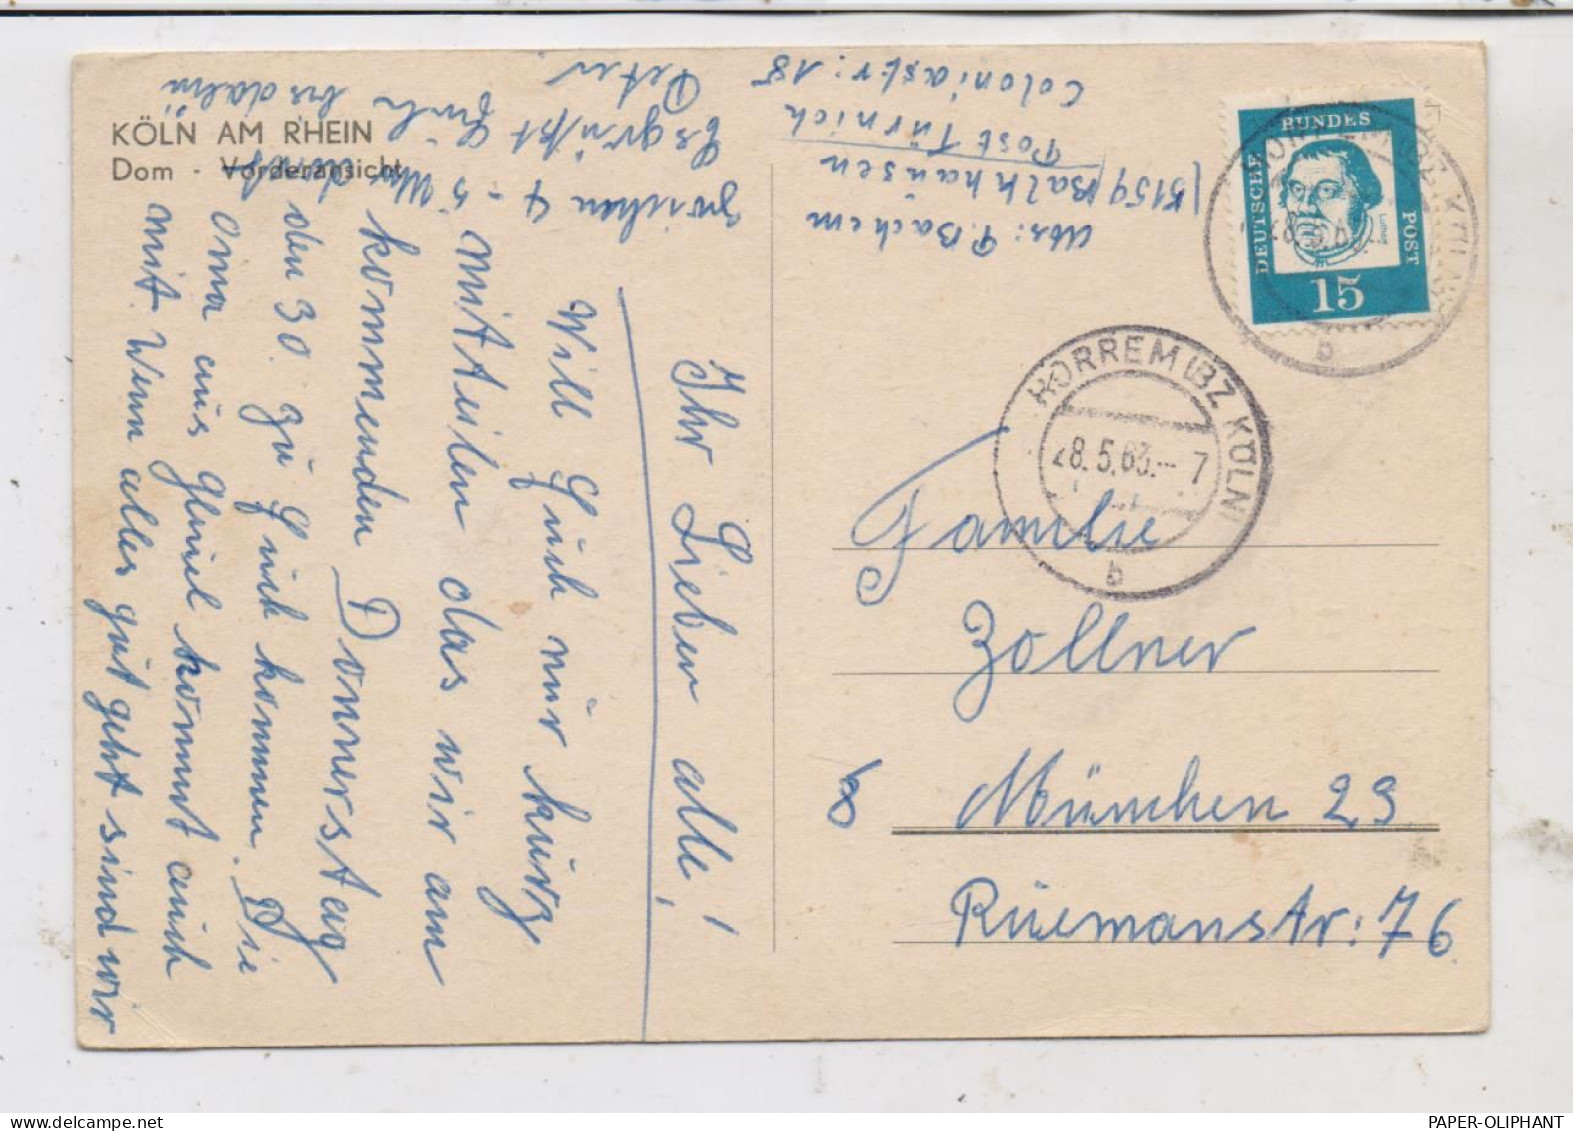 KÖLN AM RHEIN
Dom - Vorderansicht
Ihr Lieben alle!
Will Euch nur kurz
mitteilen das wir am
kommenden Donnerstag
den 30. zu Euch kommen. Die
Oma aus Gleuel kommt auch
mit. Wenn alles gut geht sind wir
zwischen 4 - 5 Uhr dort
Es grüßt Euch bis dahin
Peter.
Abs: P. Bachem
5159 Balkhausen
Post Türnich
Coloniastr: 18
DEUTSCHE BUNDES POST
Luther
15
HORREM (BZ KÖLN)
28.5.63.-7
b
Familie
Zollner
8 München 23
Rümanstr: 76
PAPER-OLIPHANT